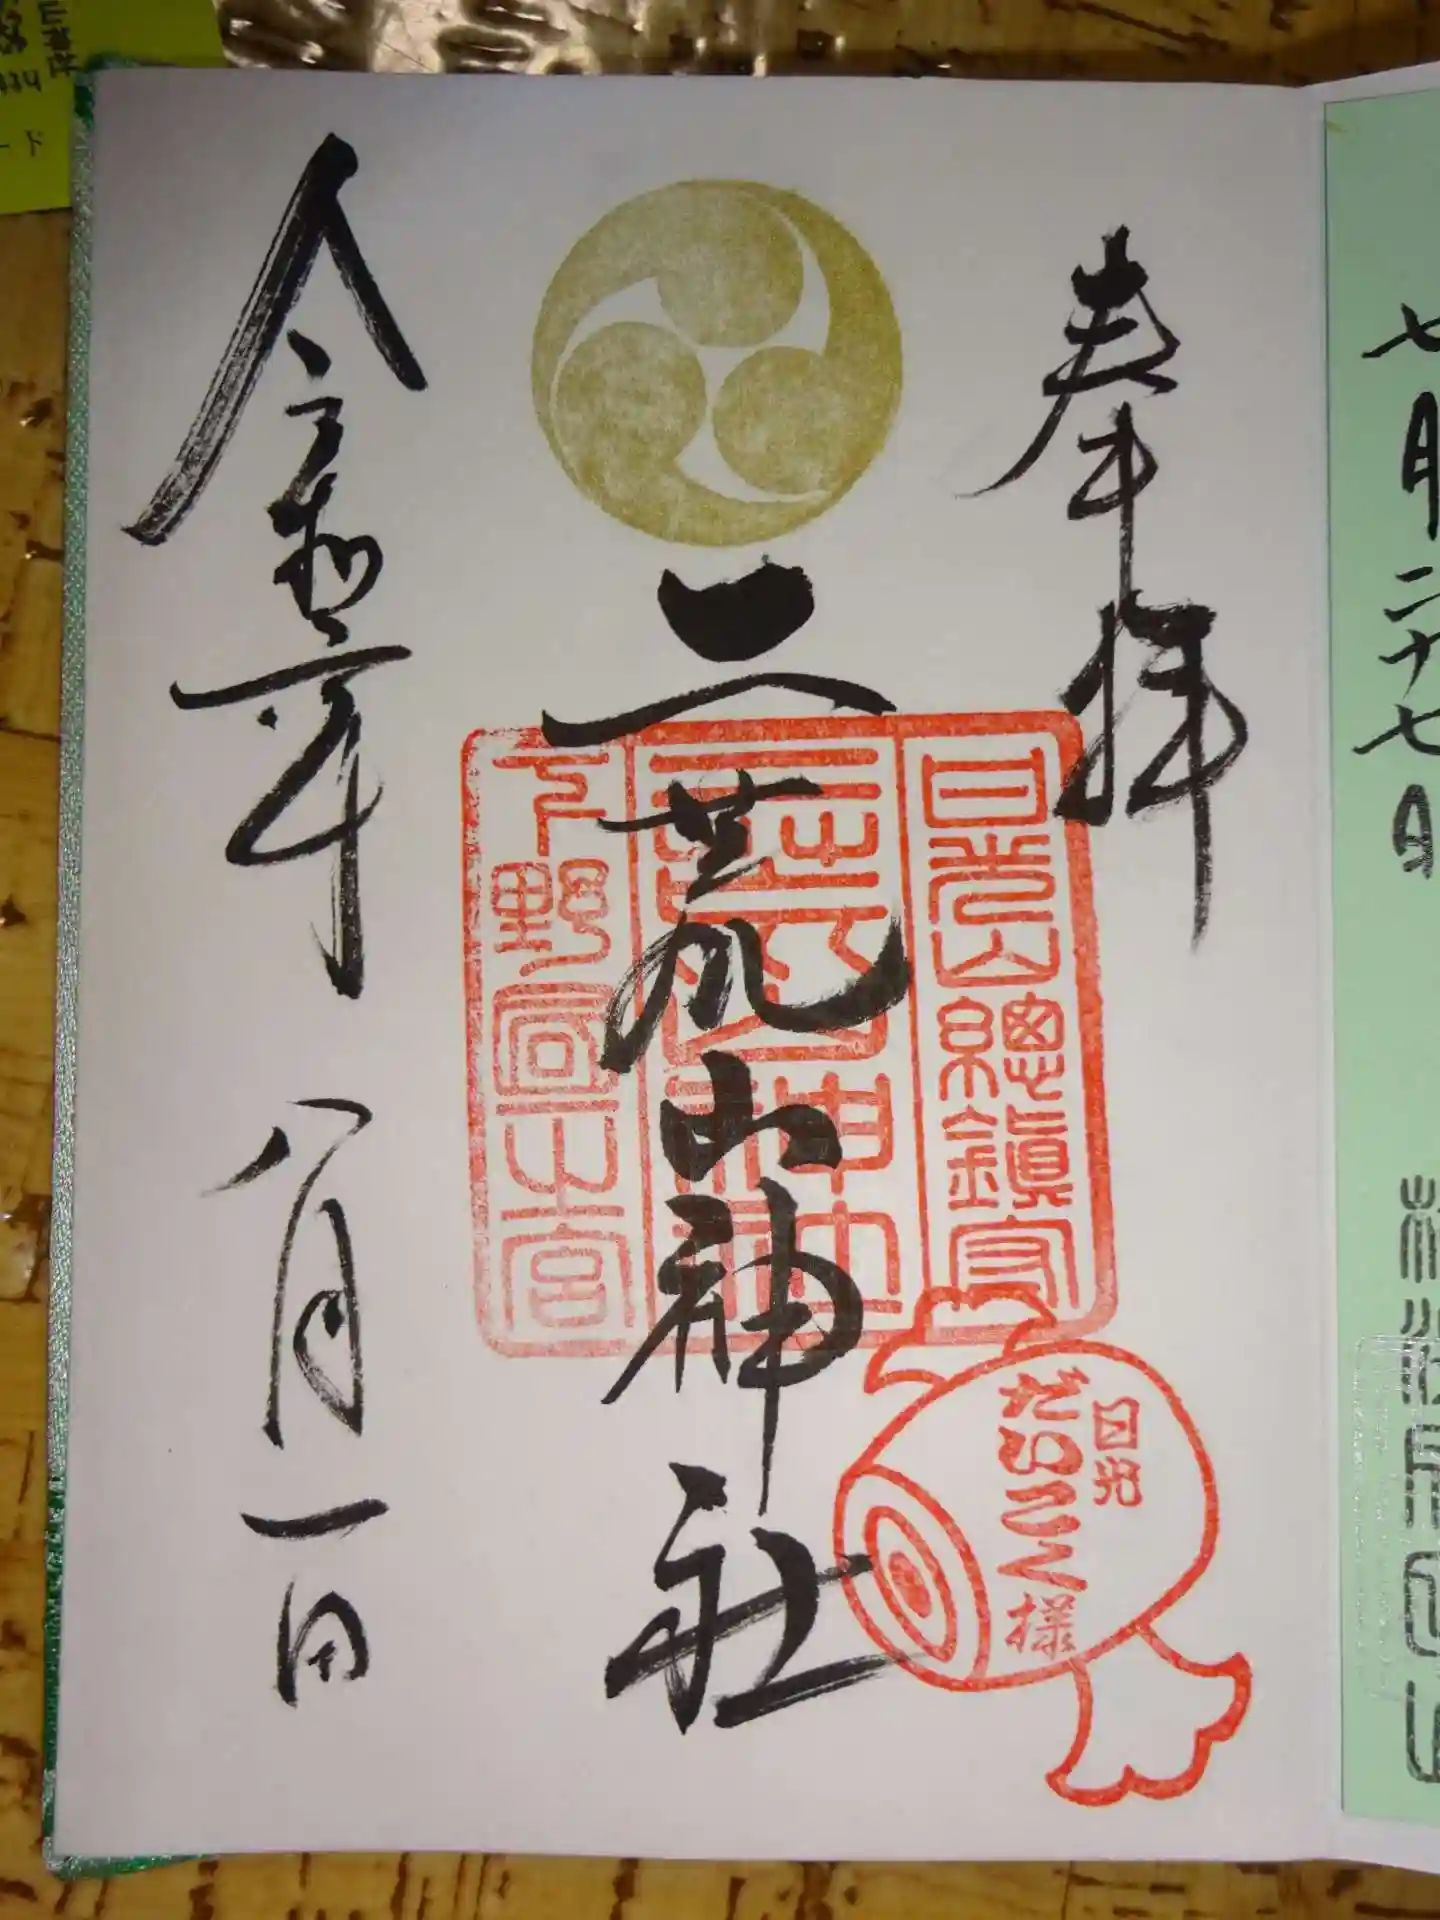 七月二十七日
奉拝
二荒山神社
日光山總鎮守
二荒山神社
下野國一之宮
日光
だいこく様
令和元年 八月一日
ード